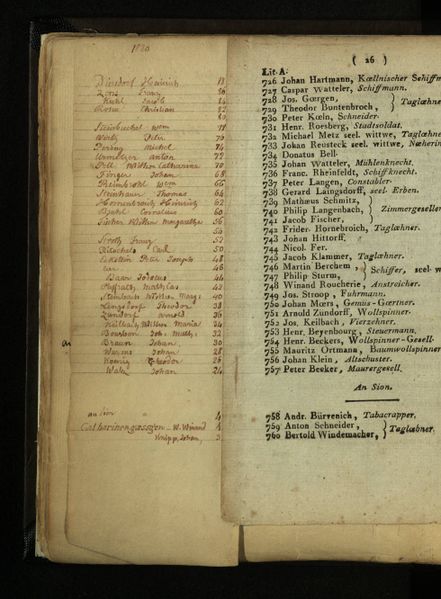 1830
Dinsdorf Heinrich 18
Zons Franz 86
Kuhl Jacob 84
Rosen Christian 82
80
Steinbüchel Wm 78
Wirtz Peter 76
Pering michel 74
anton 72
Pell Wittwe Catharina 70
Johan 68
Wm 66
Steinhauer Thomas 64
Heinrich 62
Cornelius 60
Wittwe Margaretha 56
54
Stroth Franz 52
Carl 50
Eckstein Peter Joseph 48
46
Baan 46
Mathias 42
Steinbach Wittwe Marg: 40
Lengsdorf Theodor 38
Zündorf arnold 36
Wittwe Maria 34
Math: 32
an Braun Johan 30
Warms Johan 28
Koenig Theodor 26
Johan 24
an Sion 4
Catharinengaessgen - W. Winand 4
Johan, 3
( 26 )
Lit. A:
726 Johan Hartmann, Kœllnischer Schiff
727 Caspar Watteler, Schiffmann.
728 Jos. Gœrgen,
729 Theodor Bontenbroch, } Taglœhner
730 Peter Kœln, Schneider
731 Henr. Roesberg, Stadtsoldat.
732 Michael Metz seel. wittwe, Taglœhner
733 Johan Reusteck seel. wittwe, Næherin
734 Donatus Bell
735 Johan Watteler, Mühlenknecht.
736 Franc. Rheinfeldt, Schiffknecht.
737 Peter Langen, Constabler
738 Gerard Laingsdorff, seel. Erben.
739 Mathæus Schmitz,
740 Philip Langenbach, } Zimmergesellen
741 Jacob Fischer,
742 Frider. Hornebroich, Taglœhner.
743 Johan Hittorff.
744 Nicol. Fer.
745 Jacob Klammer, Taglœhner.
746 Martin Berchem
747 Philip Sturm, } Schiffer, seel. w
748 Winand Roucherie, Anstreicher.
749 Jos. Stroop, Fuhrmann.
750 Johan Mœrs, Gemüs-Gærtner.
751 Arnold Zündorff, Wollspinner
752 Jos. Keilbach, Vierzehner.
753 Henr. Beyenbourg, Steuermann.
754 Henr. Beckers, Wollspinner-Gesell.
755 Mauritz Ortmann, Baumwollspinner
756 Johan Klein, Altschuster.
757 Peter Becker, Maurergesell.
An Sion.
758 Andr. Bürvenich, Tabacrapper.
759 Anton Schneider,
760 Bertold Windemacher, } Taglœhner.